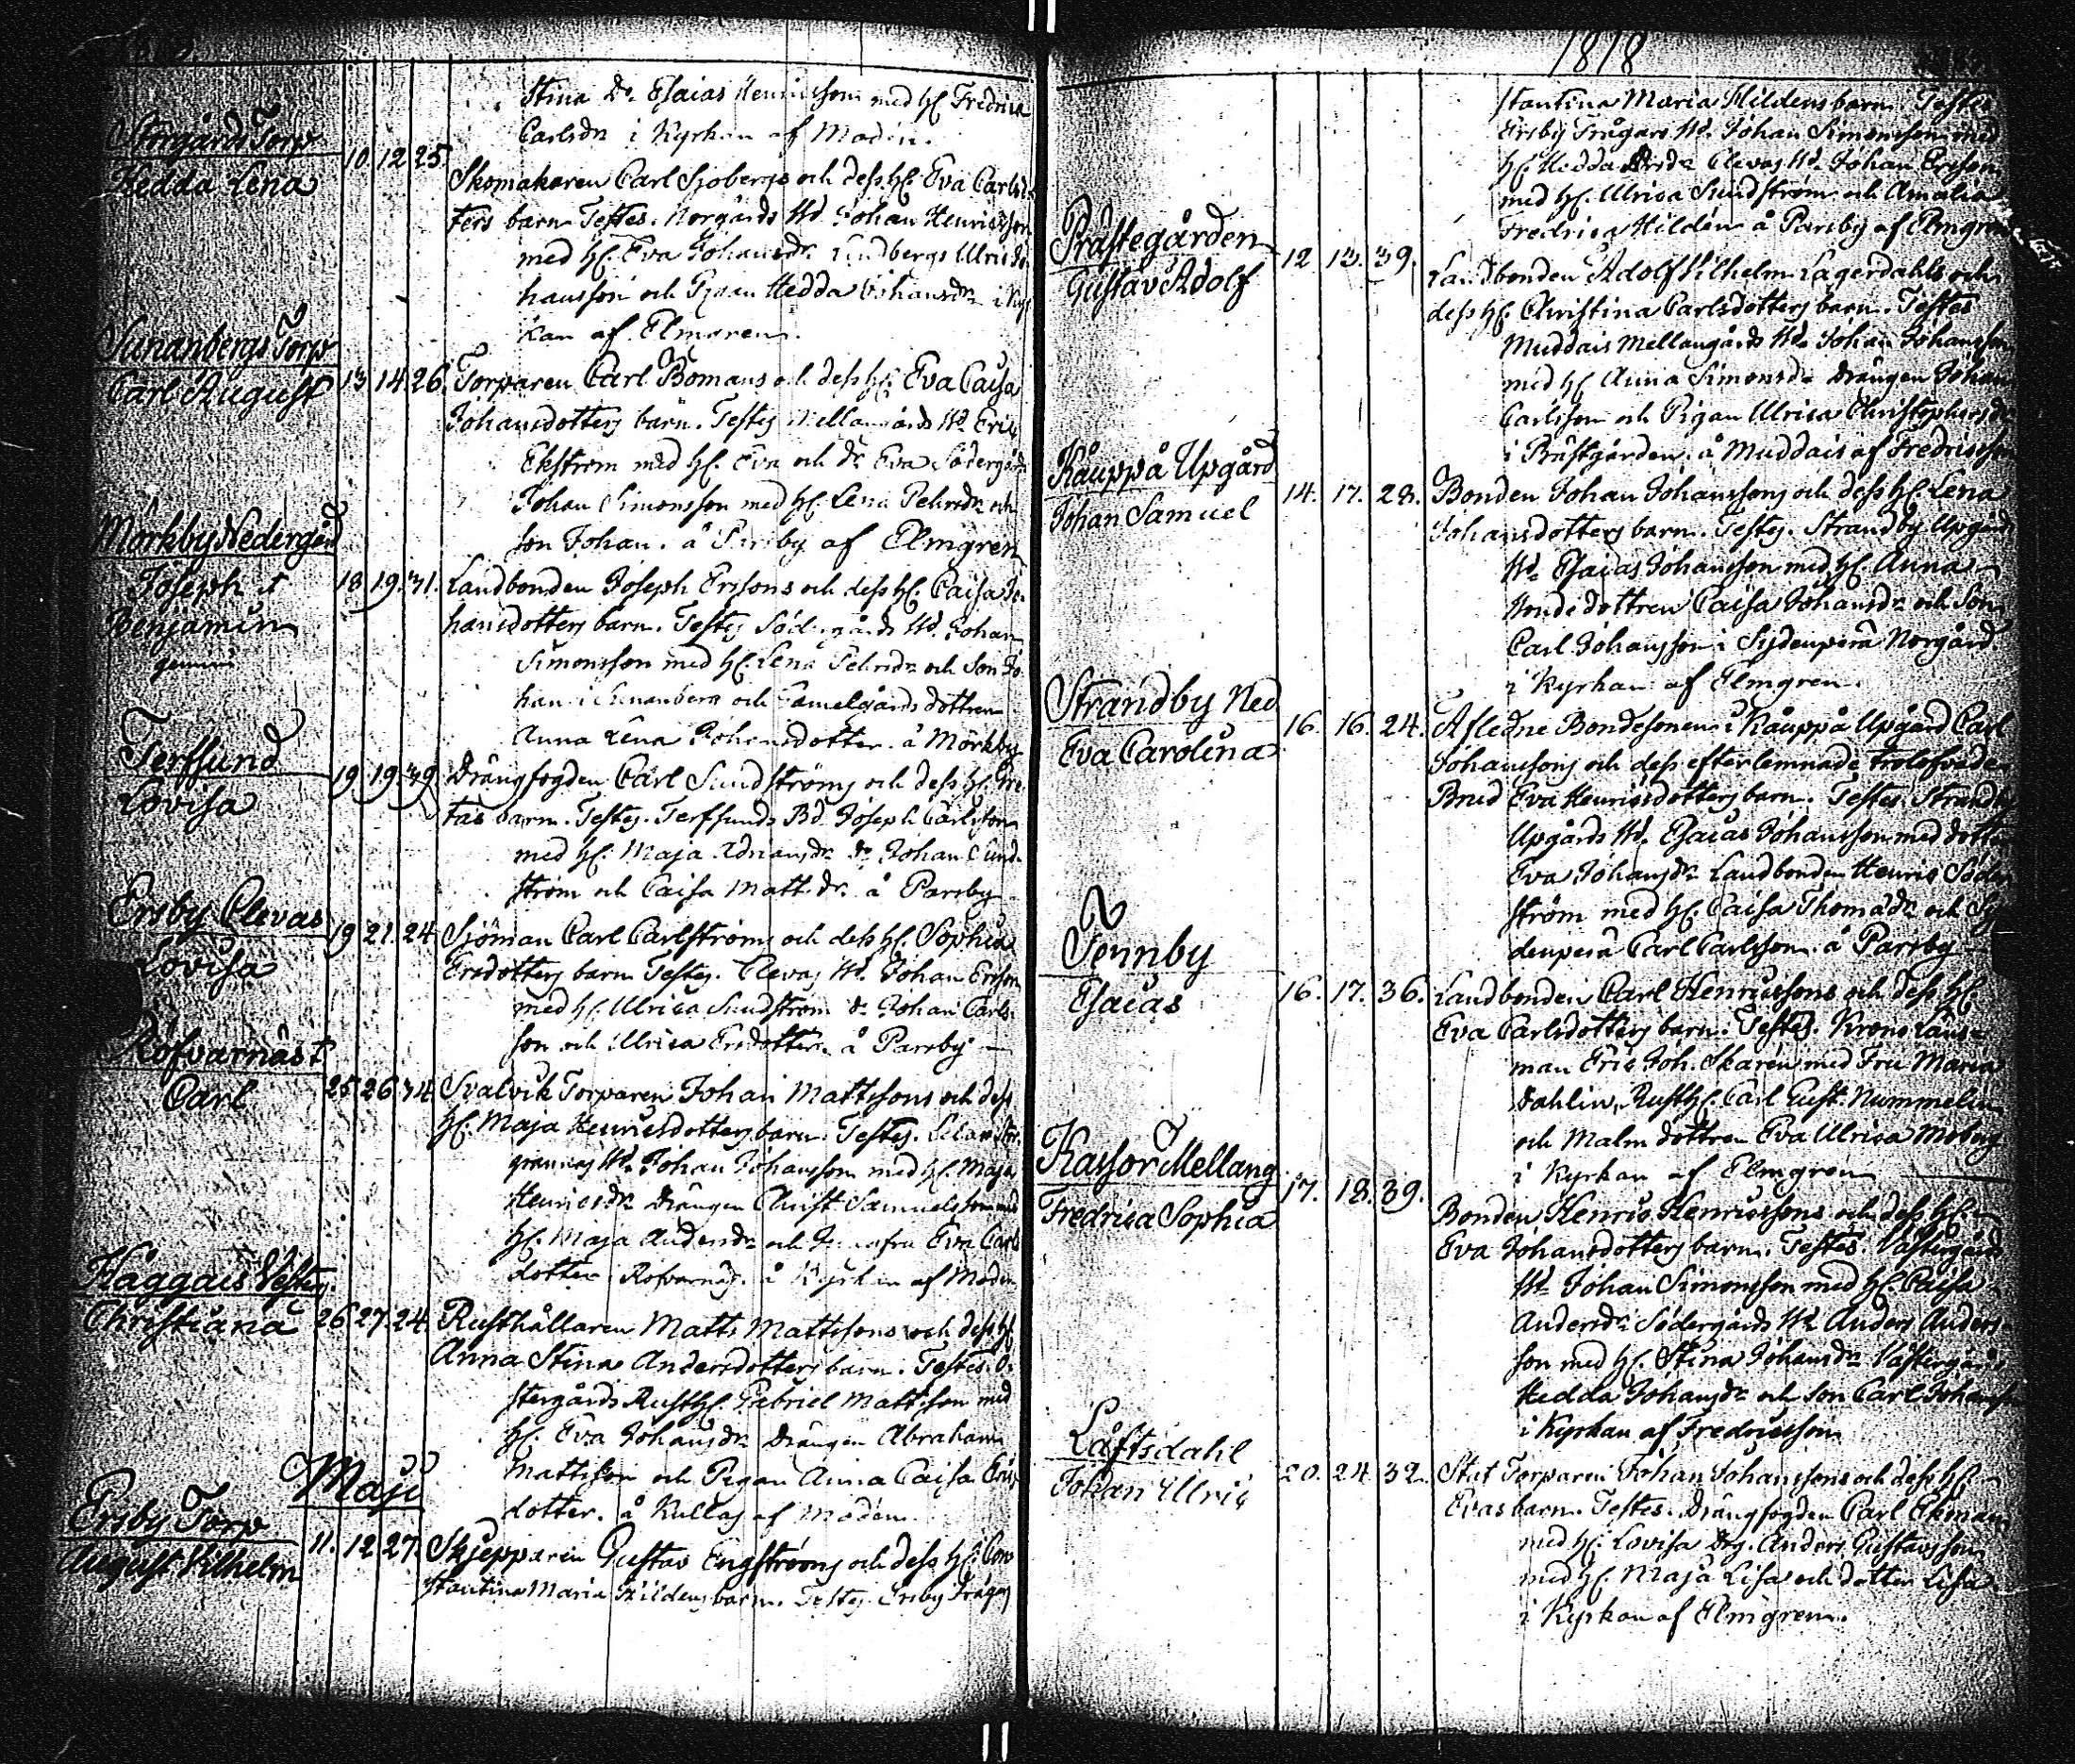 Stina Dr. Esaias Henricsson med H. Fredrica
Carlsdr i Kyrkan af Modén.
Storgårds Torp
Hedda Lena
10. 12. 25.
Skomakaren Carl Sjöbergs och dess H. Eva Carlsdotters barn Testes. Norgårds Wd. Johan Henricsson
med H. Eva Johansdr Lindbergs Ulric Johansson och Pigan Hedda Johansdr i Kyrkan af Elmgren.
Sunanbergs Torp
Carl August
13. 14. 26.
Torparen Carl Bomans och dess H. Eva Caisa
Johansdotters barn. Testes Mellangårds Wd. Eric
Ekström med H. Eva och Dr Eva Södergårds
Johan Simonsson med H. Lena Pehrsdr och
son Johan. å Parsby af Elmgren
Mörkby Nedergård
Joseph et
Benjamin
gemini
18. 19. 31.
Landbonden Joseph Erssons och dess H. Caisa Johansdotters barn. Testes Södergårds Wd. Johan
Simonsson med H. Lena Pehrsdr och Son Johan i Sunanberg och Gamelgårds dottren
Anna Lena Johansdotter. å Mörkby
Terfsund
Lovisa
19. 19. 39.
Drängfogden Carl Sundströms och dess H. Gretas barn. Testes. Terfsunds Bd. Joseph Carlsson
med H. Maja Adriansdr Dr Johan Sundström och Caisa Matt.dr. å Parsby
Ersby Clevas
Lovisa
19 21. 24
Sjöman Carl Carlströms och dess H. Sophia
Ersdotters barn Testes. Clevas Wd. Johan Ersson
med H. Ulrica Sundström Dr Johan Carlsson och Ulrica Ersdotter å Parsby
Röfvarnäs T
Carl
25 26 34
Svalvik Torparen Johan Mattssons och dess
H. Maja Henricsdotters barn. Testes.
grannas Wd. Johan Johansson med H. Maja
Henricsdr Drängen Christ. Samuelsson med
H. Maja Andersdr och Jungfru Eva Carlsdotter Röfvarnäs. å Kyrkan af Modén
Haggais Vesterg.
Christiana
26 27. 24.
Rusthållaren Matts Mattssons och dess H.
Anna Stina Andersdotters barn. Testes. Östergårds Rusth. Gabriel Mattsson med
H. Eva Johansdr Drängen Abraham
Mattsson och Pigan Anna Caisa Ersdotter. å Kullas af Modén.
Maji
Ersby Torp
August Vilhelm
11. 12. 27.
Skjepparen Gustav Engströms och dess H. Constantina Maria Hildens barn. Testes. Ersby Trägårs
1818
stantina Maria Hildens barn Testes
Ersby Trägårs Wd. Johan Simonsson med
H. Hedda Ersdr Clevas Wd. Johan Ersson
med H. Ulrica Sundström och Amalia
Fredrica Hildén å Parsby af Elmgren
Prästegården
Gustav Adolf
12 13. 39.
Landbonden Adolf Vilhelm Lagerdahls och
dess H. Christina Carlsdotters barn. Testes
Muddais Mellangårds Wd. Johan Johansson
med H. Anna Simonsdr Drängen Johan
Carlsson och Pigan Ulrica Christophersdr
i Prästgården. å Muddais af Fredricsson
Kauppå Upgård
Johan Samuel
14. 17. 28.
Bonden Johan Johanssons och dess H. Lena
Johansdotters barn. Testes. Strandby Upgårds
Wd. Esaias Johansson med H. Anna
Bondedottren Caisa Johansdr och Son
Carl Johansson i Sydenperä Norgård
i Kyrkan af Elmgren.
Strandby Ned
Eva Carolina
16. 16. 24.
Afledne Bondesonen i Kåuppå Upgård Carl
Johanssons och dess efterlemnade trolofvade
Brud Eva Henricsdotters barn. Testes Strandby
Upgårds Wd. Esaias Johansson med dotter
Eva Johansdr Landbonden Henric Söderström med H. Caisa Thomasdr och Sydenperä Carl Carlsson å Parsby
Tennby
Esaias
16. 17. 36.
Landbonden Carl Henricssons och dess H.
Eva Carlsdotters barn. Testes. Krono Länsman Eric Joh. Skarén med Fru Maria
Dahlin, Rusth. Carl Gust. Nummelin
och Malm dottren Eva Ulrica Moberg
i Kyrkan af Elmgren
Kassor Mellang
Fredrica Sophia
17. 18. 39.
Bonden Henric Henricssons och dess H.
Eva Johansdotters barn. Testes. Västergårds
Wd. Johan Simonsson med H. Caisa
Andersdr Södergårds Wd. Anders Andersson med H. Stina Johansdr Västergårds
Hedda Johansdr och son Carl Johansson
i Kyrkan af Fredricsson
Låftsdahl
Johan Ulric
20. 24 32.
Stat Torparen Johan Johanssons och dess H.
Evas barn. Testes. Drängfogden Carl Ekman
med H. Lovisa Drg. Anders Gustavsson
med H. Maja Lisa och dotter Lisa
i Kyrkan af Elmgren.